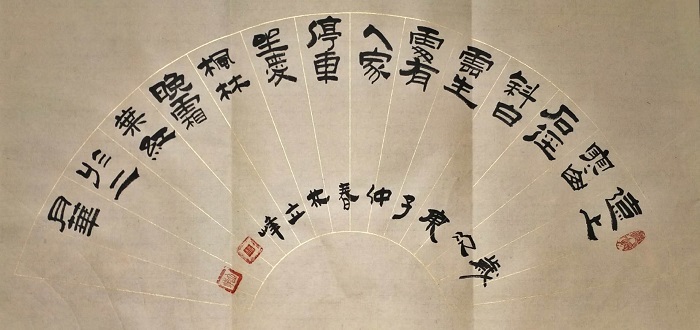 遠上
寒山
石徑
斜白
雲生
處有
人家
停車
坐愛
楓林
晚霜
葉紅
於二
月華
歲次庚子仲春立峰